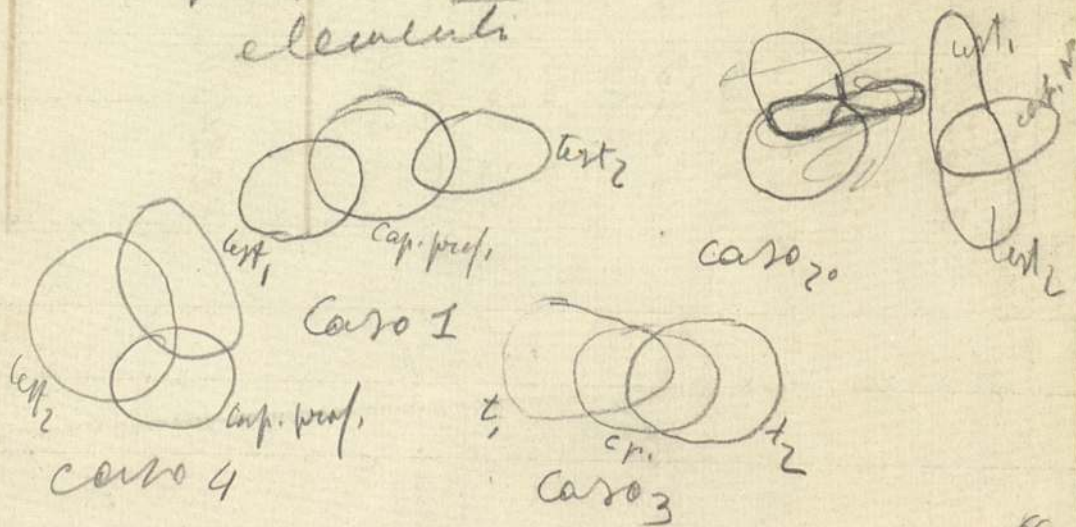 elementi
test₁
cap. prof.
test₂
Caso 1
test₁
test₂
caso 2º
test₂
cap. prof.
caso 4
t₁
c.p.
t₂
Caso 3